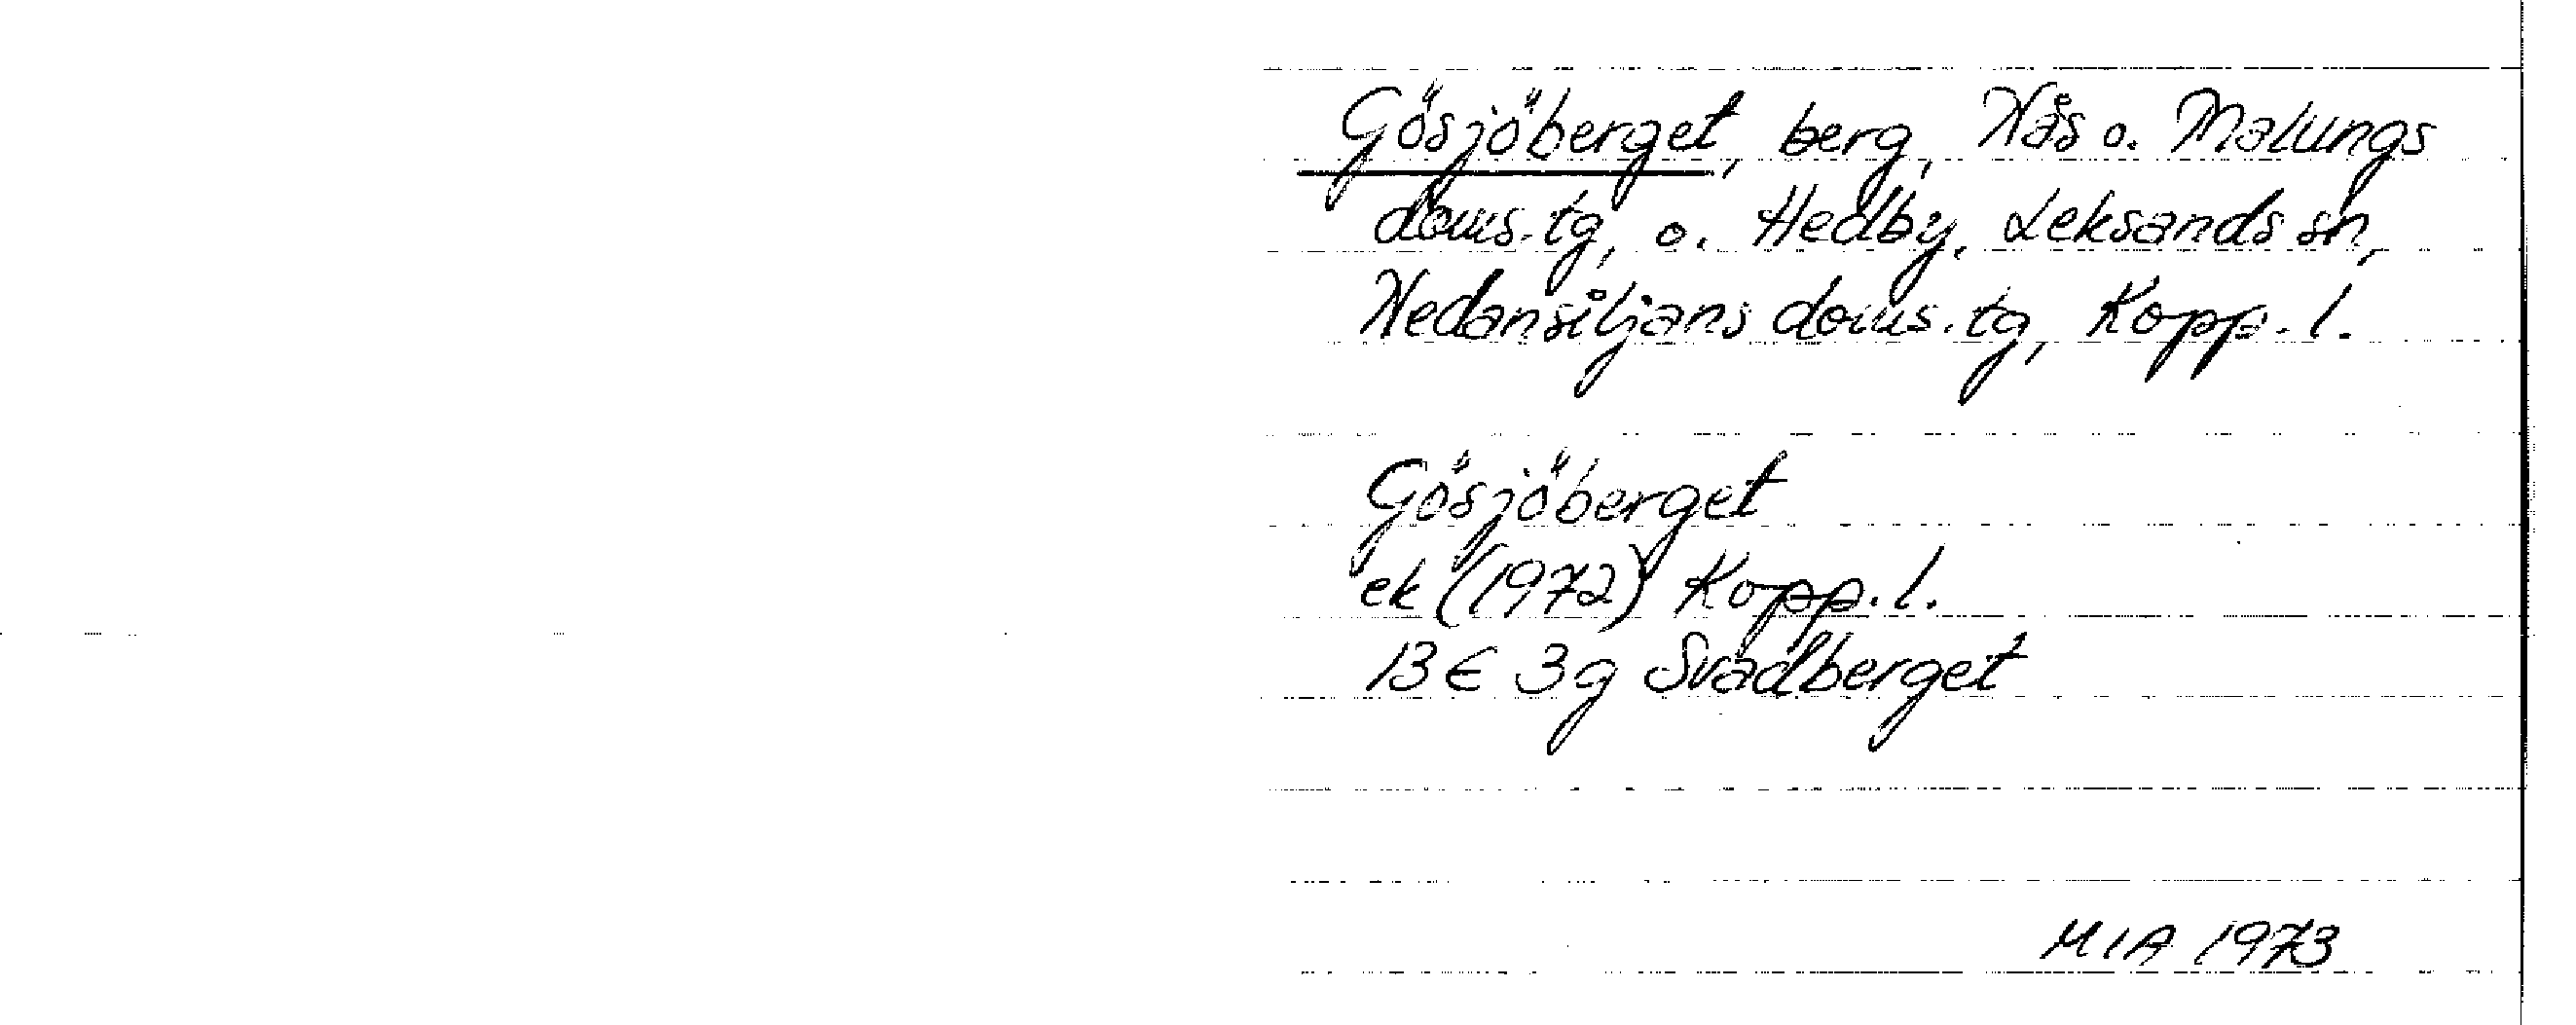 Gösjöberget, berg, Nås o. Malungs
doms.tg, o. Hedby, Leksands sn,
Nedansiljans doms.tg, Kopp. l.
Gösjöberget
ek (1972) Kopp. l.
13E 3g Svadberget
MIA 1973